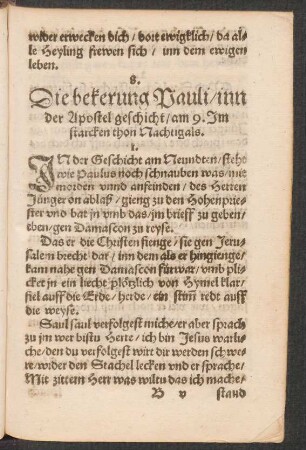 wider erwecken dich / dort ewigklich / da al-
le Heyling frewen sich / inn dem ewigen
leben.
8.
Die bekerung Pauli / inn
der Apostel geschicht / am 9. Im
starcken thon Nachtigals.
1.
IN der Geschicht am Neundten / steht
wie Paulus noch schnauben was / mit
morden vnnd anfeinden / des Herren
Jünger on ablaß / gieng zu den Hohenprie-
ster vnd bat jn vmb das / jm brieff zu geben
eben / gen Damascon zu reyse.
Das er die Christen fienge / sie gen Jeru-
salem brecht dar / inn dem als er hingienge /
kam nahe gen Damascon fürwar / vmb plic-
cket jn ein liecht plötzlich von Hymel klar /
fiel auff die Erde / herde / ein stim̃ redt auff
die weyse.
Saul saul verfolgest mich / er aber sprach
zu jm wer bistu Herre / ich bin Jesus warli-
che / den du verfolgest wirt dir werden schwe-
re / wider den Stachel lecken vnd er sprache /
Mit zittern Herr was wiltu das ich mache /
B v stand